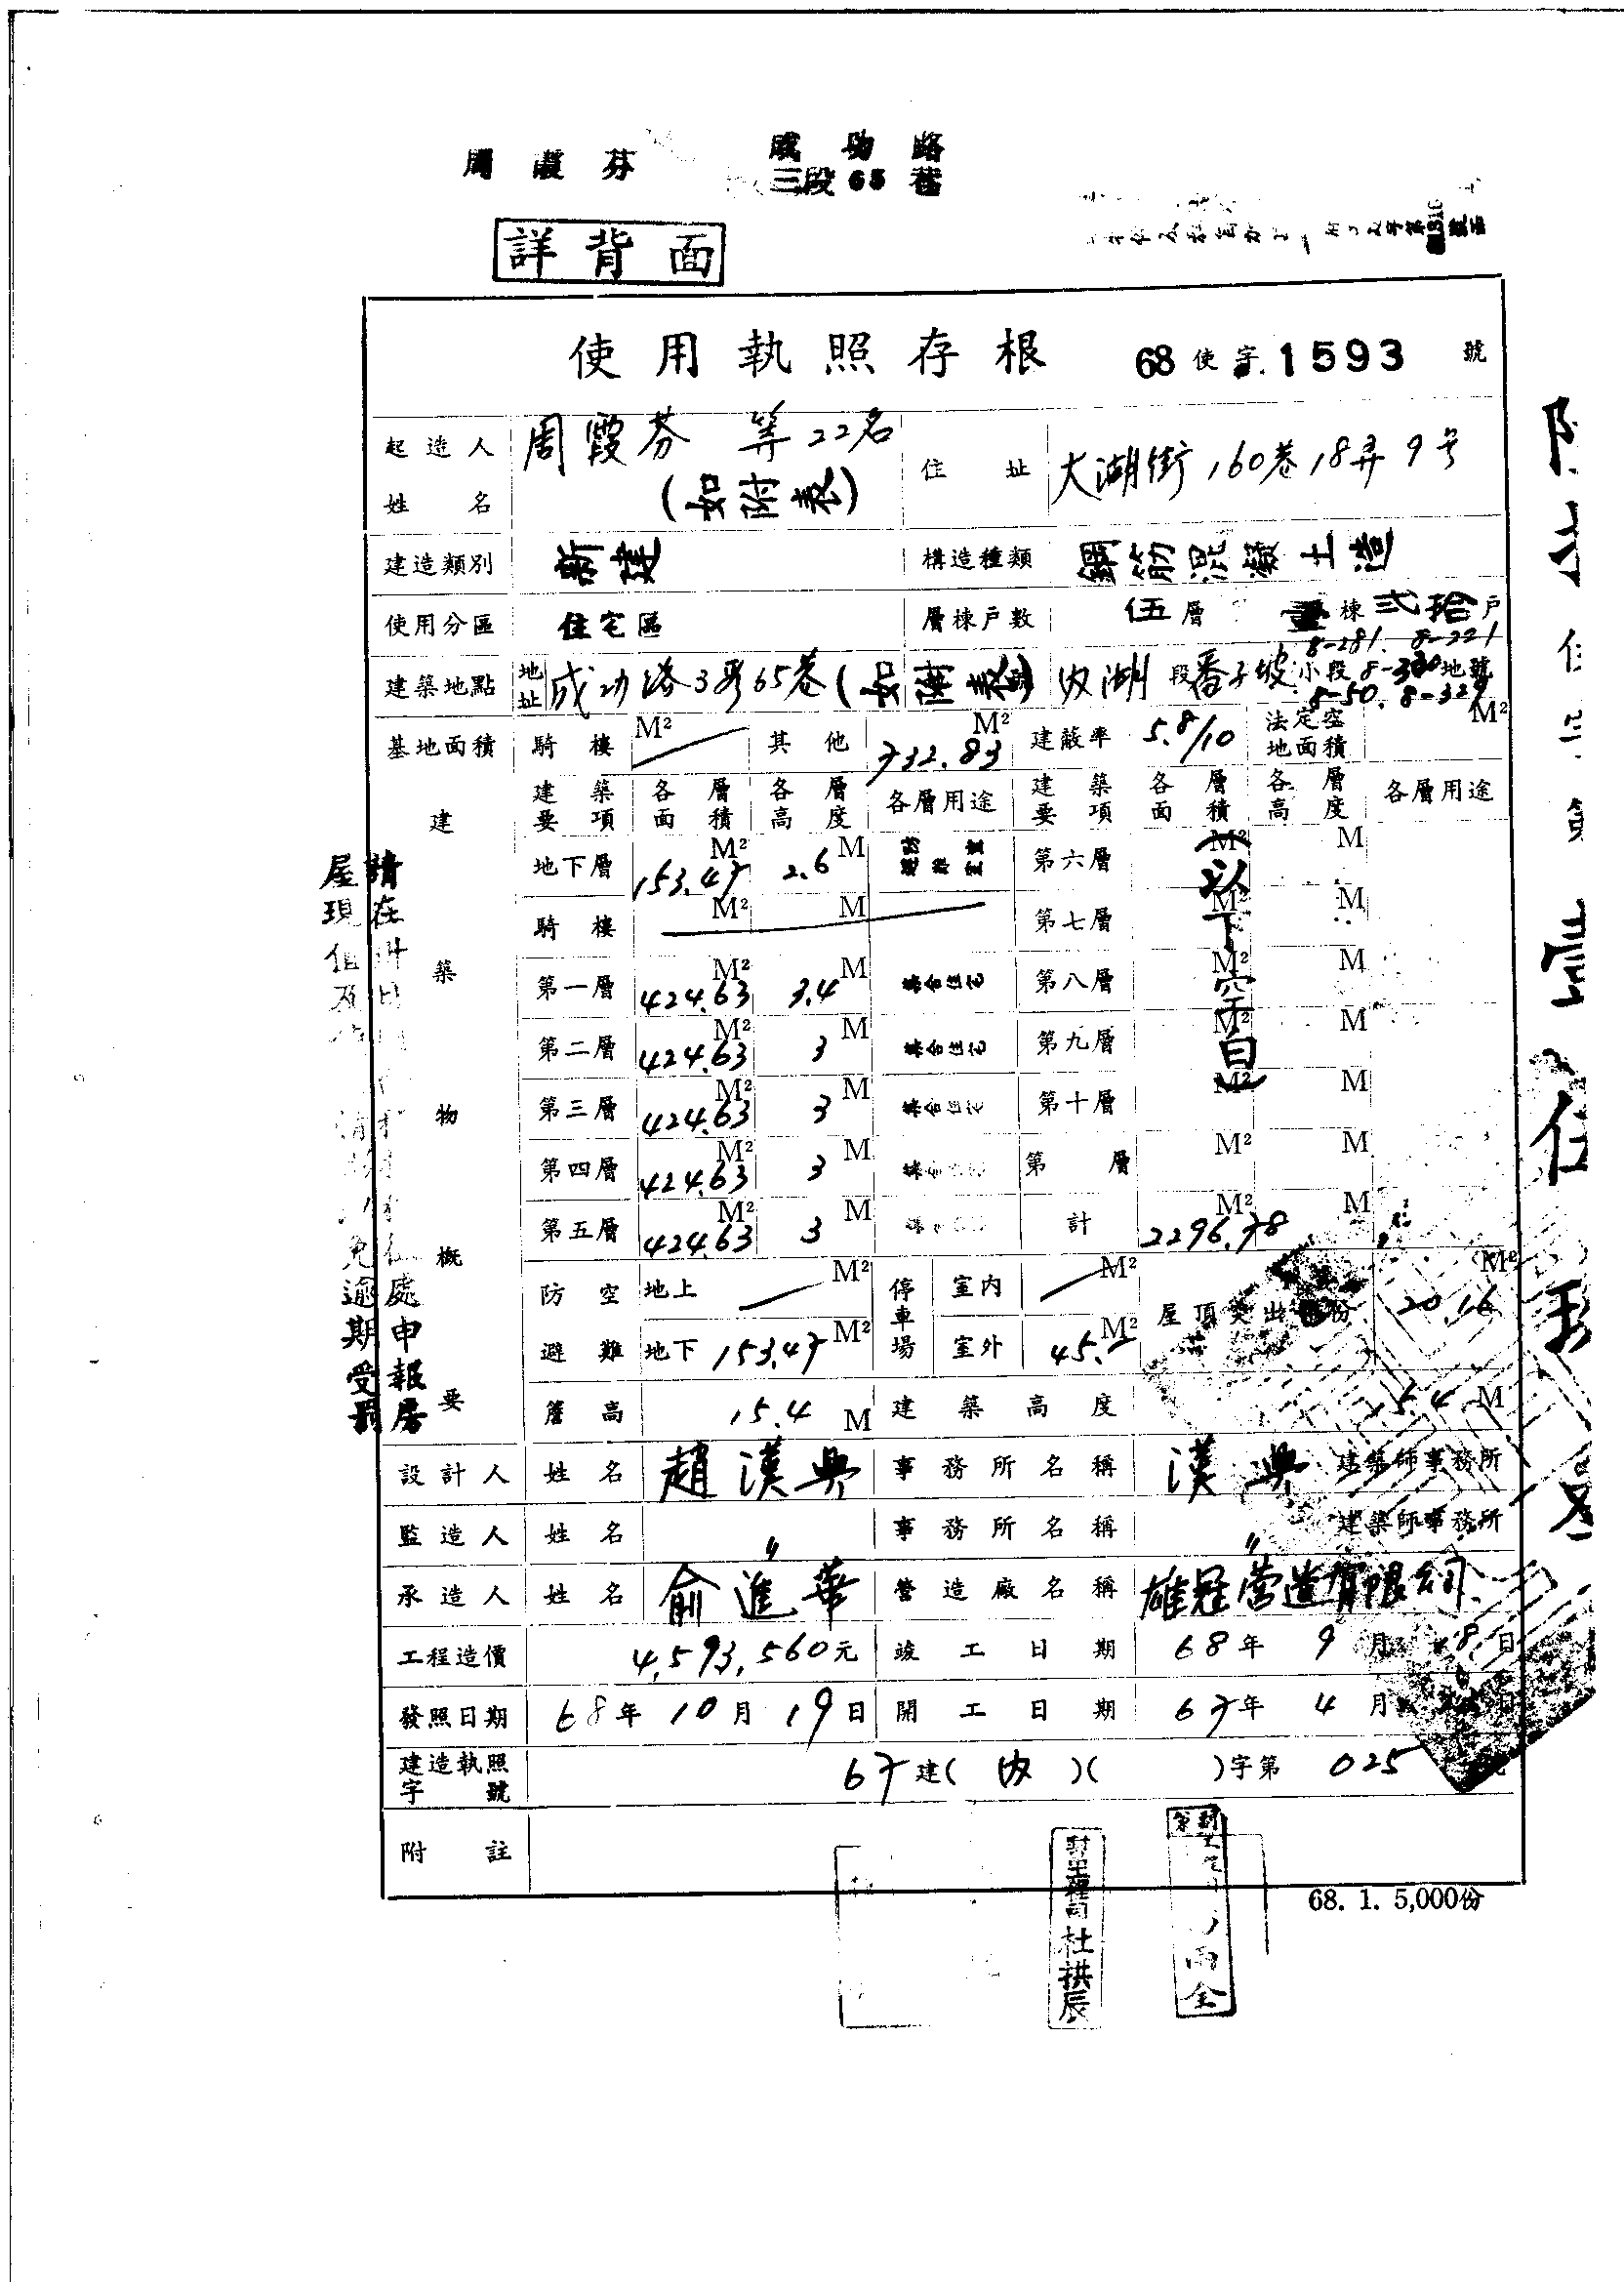 周霞芬
成功路
三段65巷
詳背面
使用執照存根 68使字.1593號
起造人姓名 周霞芬 等22名
(如附表)
住址 大湖街160巷18弄9号
建造類別 新建 構造種類 鋼筋混凝土造
使用分區 住宅區 層棟戶數 伍層 壹棟 弍拾戶
8-281. 8-221
建築地點 地址 成功路3段65巷(如附表) 內湖段番子坡小段8-330地號
8-50. 8-329
基地面積 騎樓 M² 其他 732.83 M² 建蔽率 5.8/10 法定空地面積 M²
建築物概要
建築要項 各層面積 各層高度 各層用途 建築要項 各層面積 各層高度 各層用途
地下層 153.47 M² 2.6 M 第六層 M² M
騎樓 M² M 第七層 M² M
第一層 424.63 M² 3.4 M 集合住宅 第八層 M² M
第二層 424.63 M² 3 M 集合住宅 第九層 M² M
第三層 424.63 M² 3 M 集合住宅 第十層 M² M
第四層 424.63 M² 3 M 集合住宅 第 層 M² M
第五層 424.63 M² 3 M 計 2296.78 M² M
以下空白
防空避難 地上 M² 停車場 室內 M² 屋頂突出部份 20.16 M²
地下 153.47 M² 室外 45. M²
簷高 15.4 M 建築高度 15.4 M
設計人 姓名 趙漢典 事務所名稱 漢典 建築師事務所
監造人 姓名 〃 事務所名稱 〃 建築師事務所
承造人 姓名 俞進華 營造廠名稱 雄冠營造有限公司
工程造價 4,593,560元 竣工日期 68年9月8日
發照日期 68年10月19日 開工日期 67年4月 日
建造執照字號 67建(內)( )字第025
附註
68. 1. 5,000份
杜拱辰
雨全
請在
屋現
處申報房
免逾期受罰